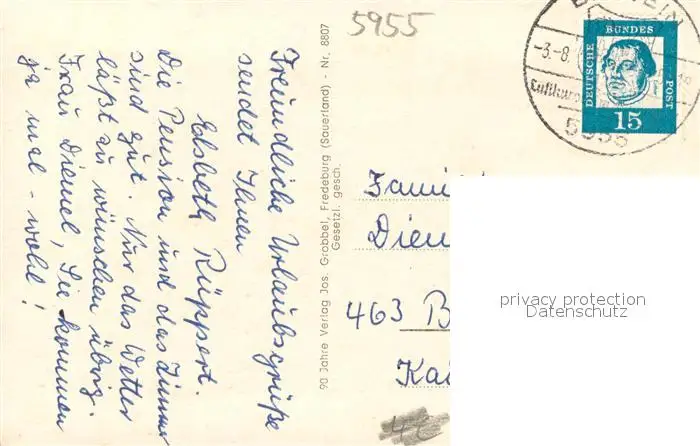 Freundliche Urlaubsgrüße
sendet Ihnen
Elsbeth Rüppert.
Die Pension und das Zimmer
sind gut. Nur das Wetter
läßt zu wünschen übrig.
Frau Diemel, Sie kommen
ja mal - wohl!
90 Jahre Verlag Jos. Grobbel, Fredeburg (Sauerland) - Nr. 8807
Gesetzl. gesch.
5955
-3.-8.
Luftkur
DEUTSCHE
BUNDES
POST
15
Famil
Diem
463 B
Kai
privacy protection
Datenschutz